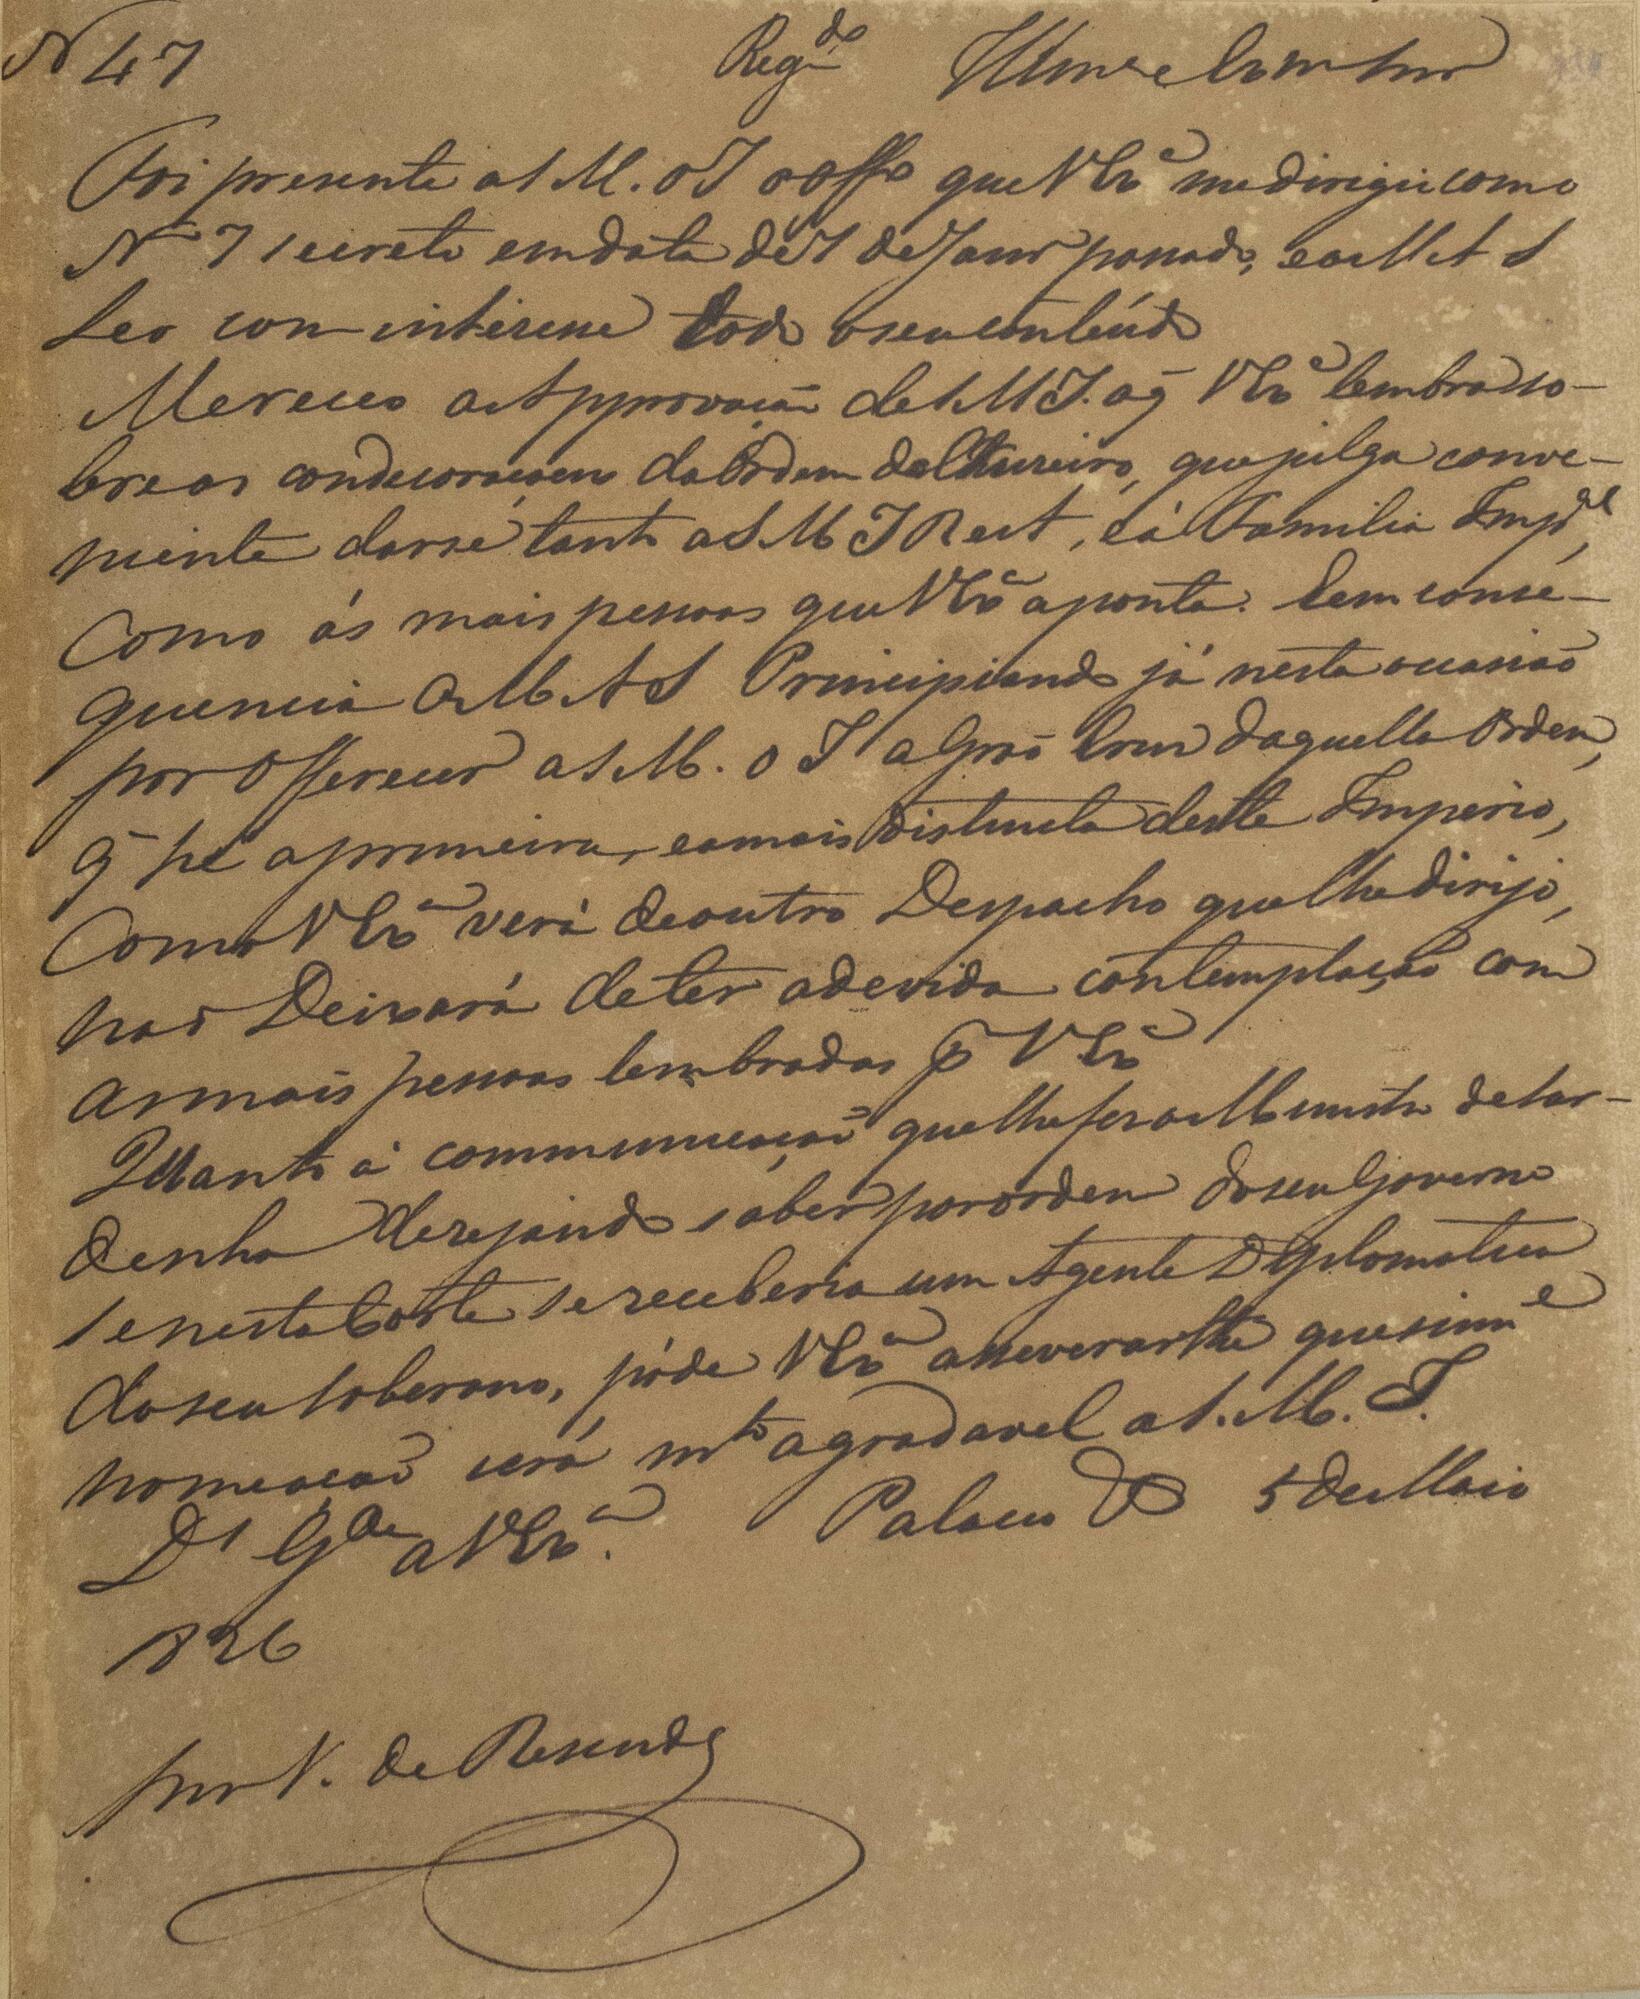 N 47 Reg.do Illmo e Exmo Snr
Foi presente a S M. o I o offo que V Exa me dirigio com o
No 7 secreto em data de 7 de Janro passado, e o M A S
Leo com interesse todo o seu conteúdo
Mereceo a Approvação de S M I. o q̃ V Exa lembra so-
bre as condecoraçoens da Ordem do Cruzeiro, que julga conve-
niente darse tanto a S M I R e A, e á Familia Impal,
Como ás mais pessoas que V Exa aponta. Em conse-
quencia O M A S Principiando já nesta occasião
por Offerecer a S M. o I a Grão Cruz daquella Ordem,
q̃ hé a primeira, e a mais distincta deste Imperio,
Como V Exa verá de outro Despacho que lhe dirijo,
não Deixará de ter a devida contemplação com
as mais pessoas lembradas p V Exa
Quanto á communicação que lhe fez o Ministro de Sar-
denha desejando saber por ordem do seu Governo
se nesta Corte se receberia um Agente Diplomatico
do seu Soberano, póde V Exa asseverarlhe que sim e
nomeação será mto agradavel a S. M. I.
Ds Gde a V Exa. Palacio 5 de Maio
1826
Snr V. de Resende